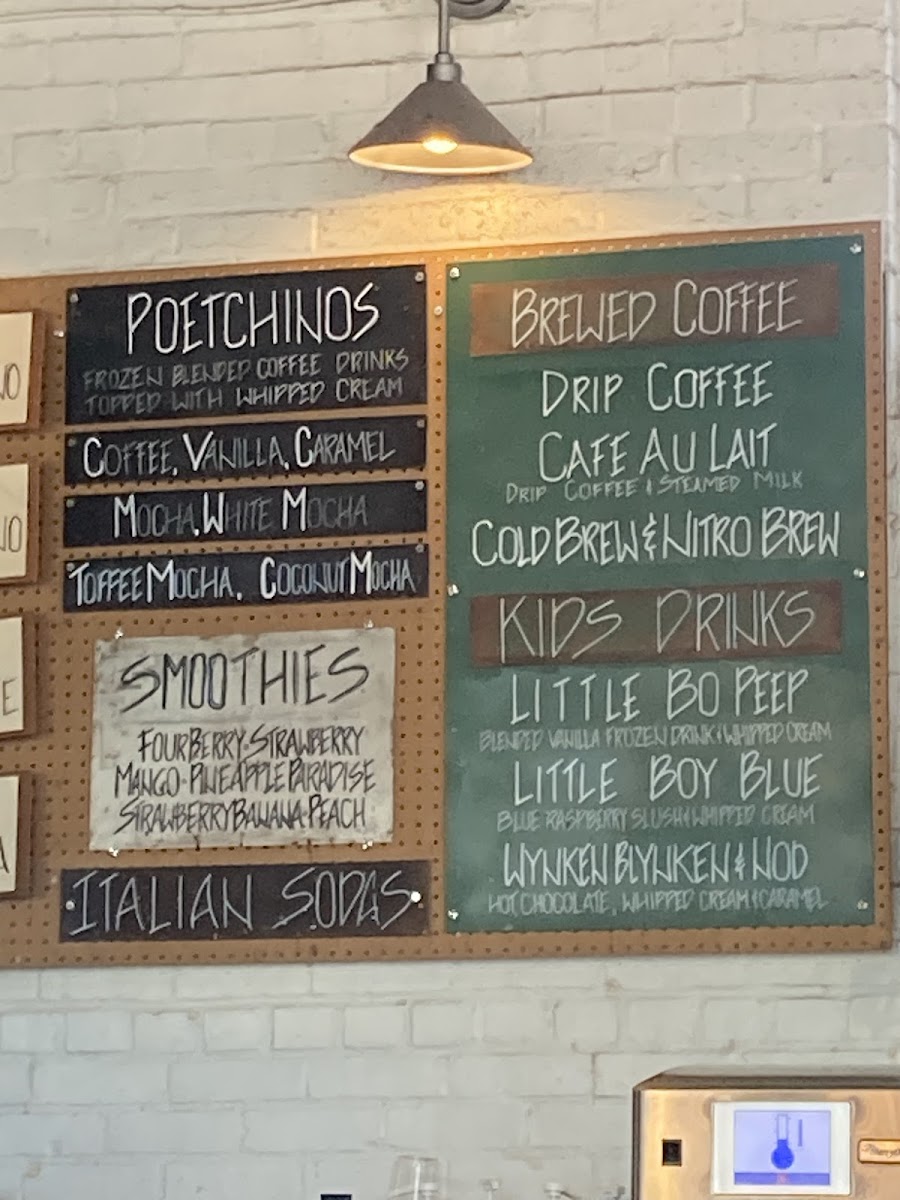 POETCHINOS
FROZEN BLENDED COFFEE DRINKS
TOPPED WITH WHIPPED CREAM
COFFEE, VANILLA, CARAMEL
MOCHA, WHITE MOCHA
TOFFEE MOCHA, COCONUT MOCHA
SMOOTHIES
FOURBERRY·STRAWBERRY
MANGO·PINEAPPLE PARADISE
STRAWBERRY BANANA·PEACH
ITALIAN SODAS
BREWED COFFEE
DRIP COFFEE
CAFE AU LAIT
DRIP COFFEE & STEAMED MILK
COLD BREW & NITRO BREW
KIDS DRINKS
LITTLE BO PEEP
BLENDED VANILLA FROZEN DRINK & WHIPPED CREAM
LITTLE BOY BLUE
BLUE RASPBERRY SLUSH & WHIPPED CREAM
WYNKEN BLYNKEN & NOD
HOT CHOCOLATE, WHIPPED CREAM & CARAMEL
NO
NO
E
A